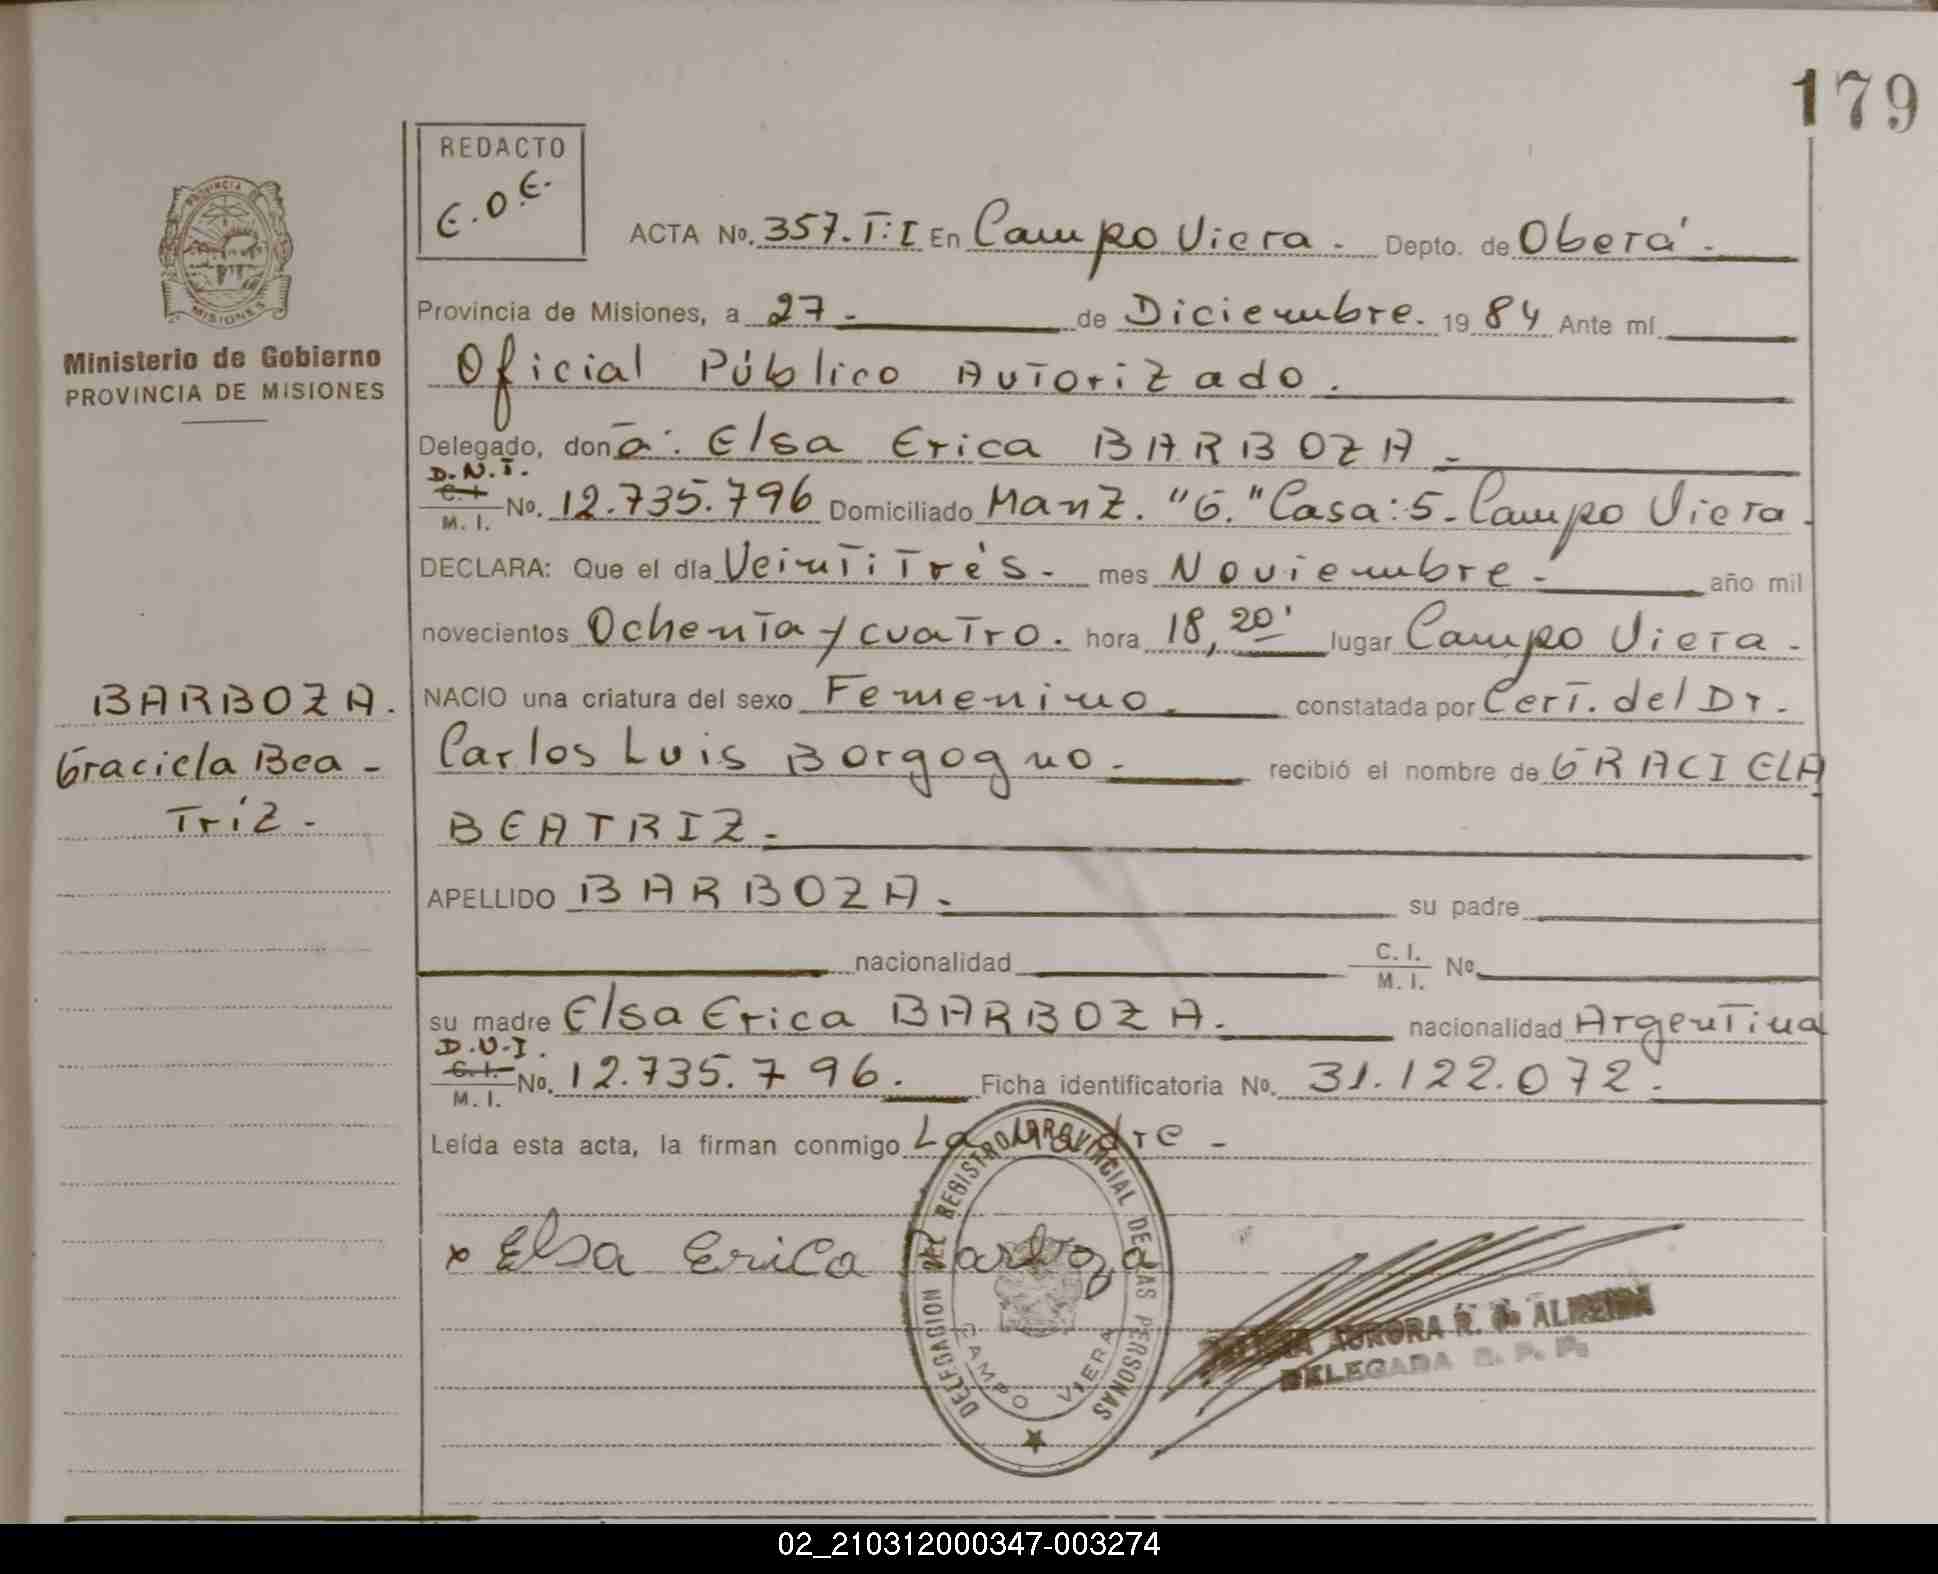 179
REDACTO
E.O.E.
ACTA No. 357.T:I En Campo Viera. Depto. de Oberá.
PROVINCIA DE
MISIONES
Provincia de Misiones, a 27. de Diciembre. 19 84 Ante mí
Ministerio de Gobierno
PROVINCIA DE MISIONES
Oficial Público Autorizado.
Delegado, don a: Elsa Erica BARBOZA.
D.N.I.
C. I.
M. I.
No. 12.735.796 Domiciliado Manz. "G." Casa: 5. Campo Viera.
DECLARA: Que el día Veintitrés. mes Noviembre. año mil
novecientos Ochenta y cuatro. hora 18,20' lugar Campo Viera.
BARBOZA.
Graciela Bea-
triz.
NACIO una criatura del sexo Femenino. constatada por Cert. del Dr.
Carlos Luis Borgogno. recibió el nombre de GRACIELA
BEATRIZ.
APELLIDO BARBOZA. su padre
nacionalidad C. I. M. I. No
su madre Elsa Erica BARBOZA. nacionalidad Argentina
D.N.I.
C. I.
M. I.
No. 12.735.796. Ficha identificatoria No. 31.122.072.
Leída esta acta, la firman conmigo La Madre.
x Elsa Erica Barboza
DELEGACION DEL REGISTRO PROVINCIAL DE LAS PERSONAS
CAMPO VIERA
AURORA R. ALMEIDA
DELEGADA R. P. P.
02_210312000347-003274